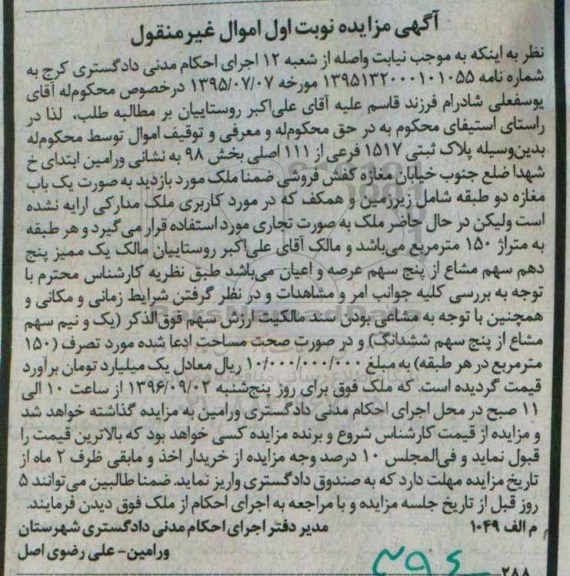 آگهی مزایده نوبت اول اموال غیرمنقول
نظر به اینکه به موجب نیابت واصله از شعبه ۱۲ اجرای احکام مدنی دادگستری کرج به
شماره نامه ۱۳۹۵۱۳۲۰۰۰۱۰۱۰۵۵ مورخه ۱۳۹۵/۰۷/۰۷ درخصوص محکوم‌له آقای
یوسفعلی شادرام فرزند قاسم علیه آقای علی‌اکبر روستاییان بر مطالبه طلب، لذا در
راستای استیفای محکوم به در حق محکوم‌له و معرفی و توقیف اموال توسط محکوم‌له
بدین‌وسیله پلاک ثبتی ۱۵۱۷ فرعی از ۱۱۱ اصلی بخش ۹۸ به نشانی ورامین ابتدای خ
شهدا ضلع جنوب خیابان مغازه کفش فروشی ضمنا ملک مورد بازدید به صورت یک باب
مغازه دو طبقه شامل زیرزمین و همکف که در مورد کاربری ملک مدارکی ارایه نشده
است ولیکن در حال حاضر ملک به صورت تجاری مورد استفاده قرار می‌گیرد و هر طبقه
به متراژ ۱۵۰ مترمربع می‌باشد و مالک آقای علی‌اکبر روستاییان مالک یک ممیز پنج
دهم سهم مشاع از پنج سهم عرصه و اعیان می‌باشد طبق نظریه کارشناس محترم با
توجه به بررسی کلیه جوانب امر و مشاهدات و در نظر گرفتن شرایط زمانی و مکانی و
همچنین با توجه به مشاعی بودن سند مالکیت ارزش سهم فوق‌الذکر (یک و نیم سهم
مشاع از پنج سهم ششدانگ) و در صورت صحت مساحت ادعا شده مورد تصرف (۱۵۰
مترمربع در هر طبقه) به مبلغ ۱۰/۰۰۰/۰۰۰/۰۰۰ ریال معادل یک میلیارد تومان برآورد
قیمت گردیده است. که ملک فوق برای روز پنج‌شنبه ۱۳۹۶/۰۹/۰۲ از ساعت ۱۰ الی
۱۱ صبح در محل اجرای احکام مدنی دادگستری ورامین به مزایده گذاشته خواهد شد
و مزایده از قیمت کارشناس شروع و برنده مزایده کسی خواهد بود که بالاترین قیمت را
قبول نماید و فی‌المجلس ۱۰ درصد وجه مزایده از خریدار اخذ و مابقی ظرف ۲ ماه از
تاریخ مزایده مهلت دارد که به صندوق دادگستری واریز نماید. ضمنا طالبین می‌توانند ۵
روز قبل از تاریخ جلسه مزایده و با مراجعه به اجرای احکام از ملک فوق دیدن فرمایند.
م الف ۱۰۴۹ مدیر دفتر اجرای احکام مدنی دادگستری شهرستان
ورامین- علی رضوی اصل
۲۸۸